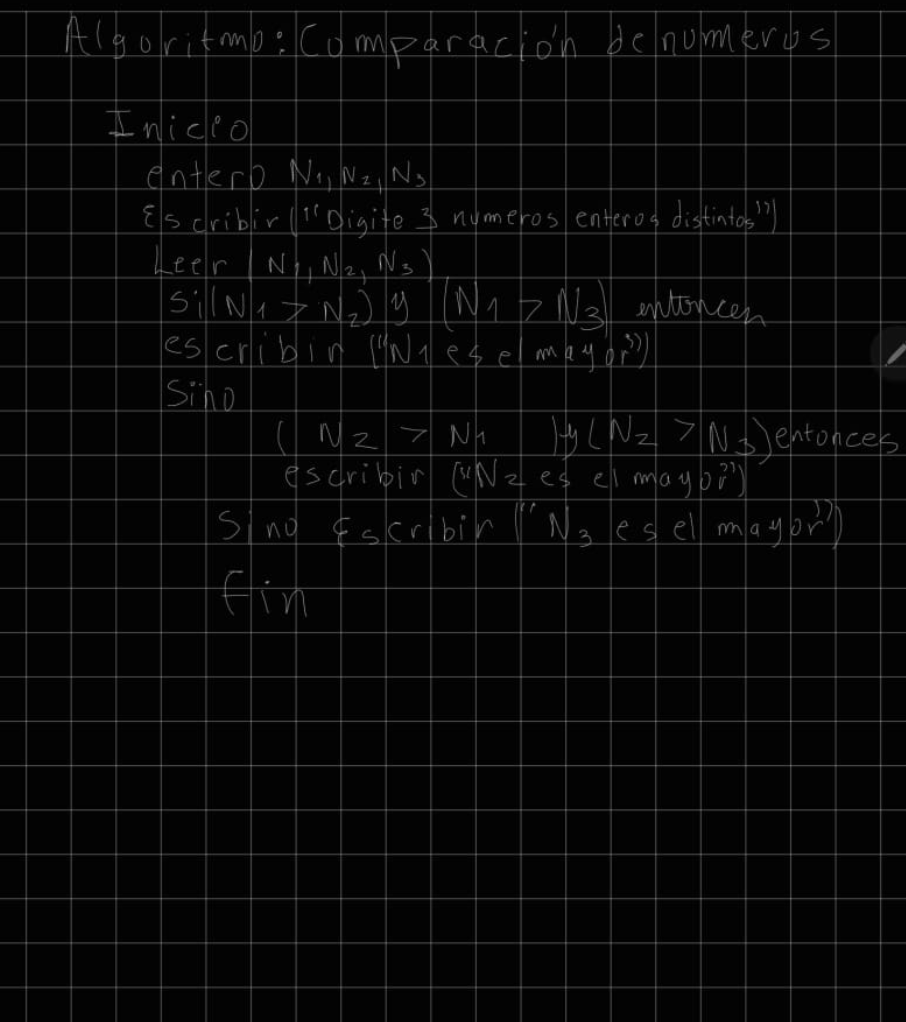 Algoritmo: Comparación de numeros
Inicio
entero N1, N2, N3
Escribir ("Digite 3 numeros enteros distintos")
Leer (N1, N2, N3)
Si (N1 > N2) y (N1 > N3) entonces
escribir ("N1 es el mayor")
Sino
( N2 > N1 ) y (N2 > N3) entonces
escribir ("N2 es el mayor")
Sino Escribir ("N3 es el mayor")
fin